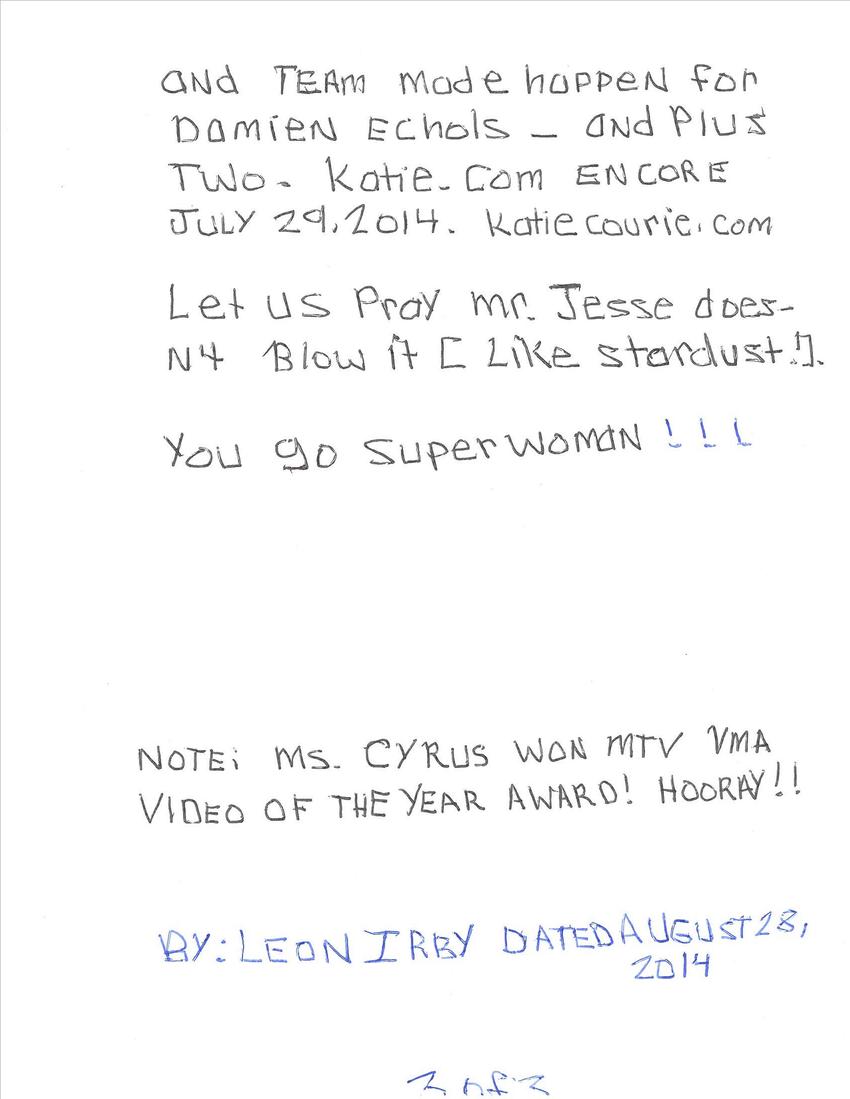 AND TEAM made happEN for
DamiEN Echols – AND Plus
TWO. Katie. Com ENCORE
JULY 29, 2014. Katiecouric.com
Let us Pray mr. Jesse does-
N4 Blow it [ Like stardust!].
You go superwoman !!!
NOTE: MS. CYRUS WON MTV VMA
VIDEO OF THE YEAR AWARD! HOORAY!!
BY: LEON IRBY DATED AUGUST 28,
2014
of